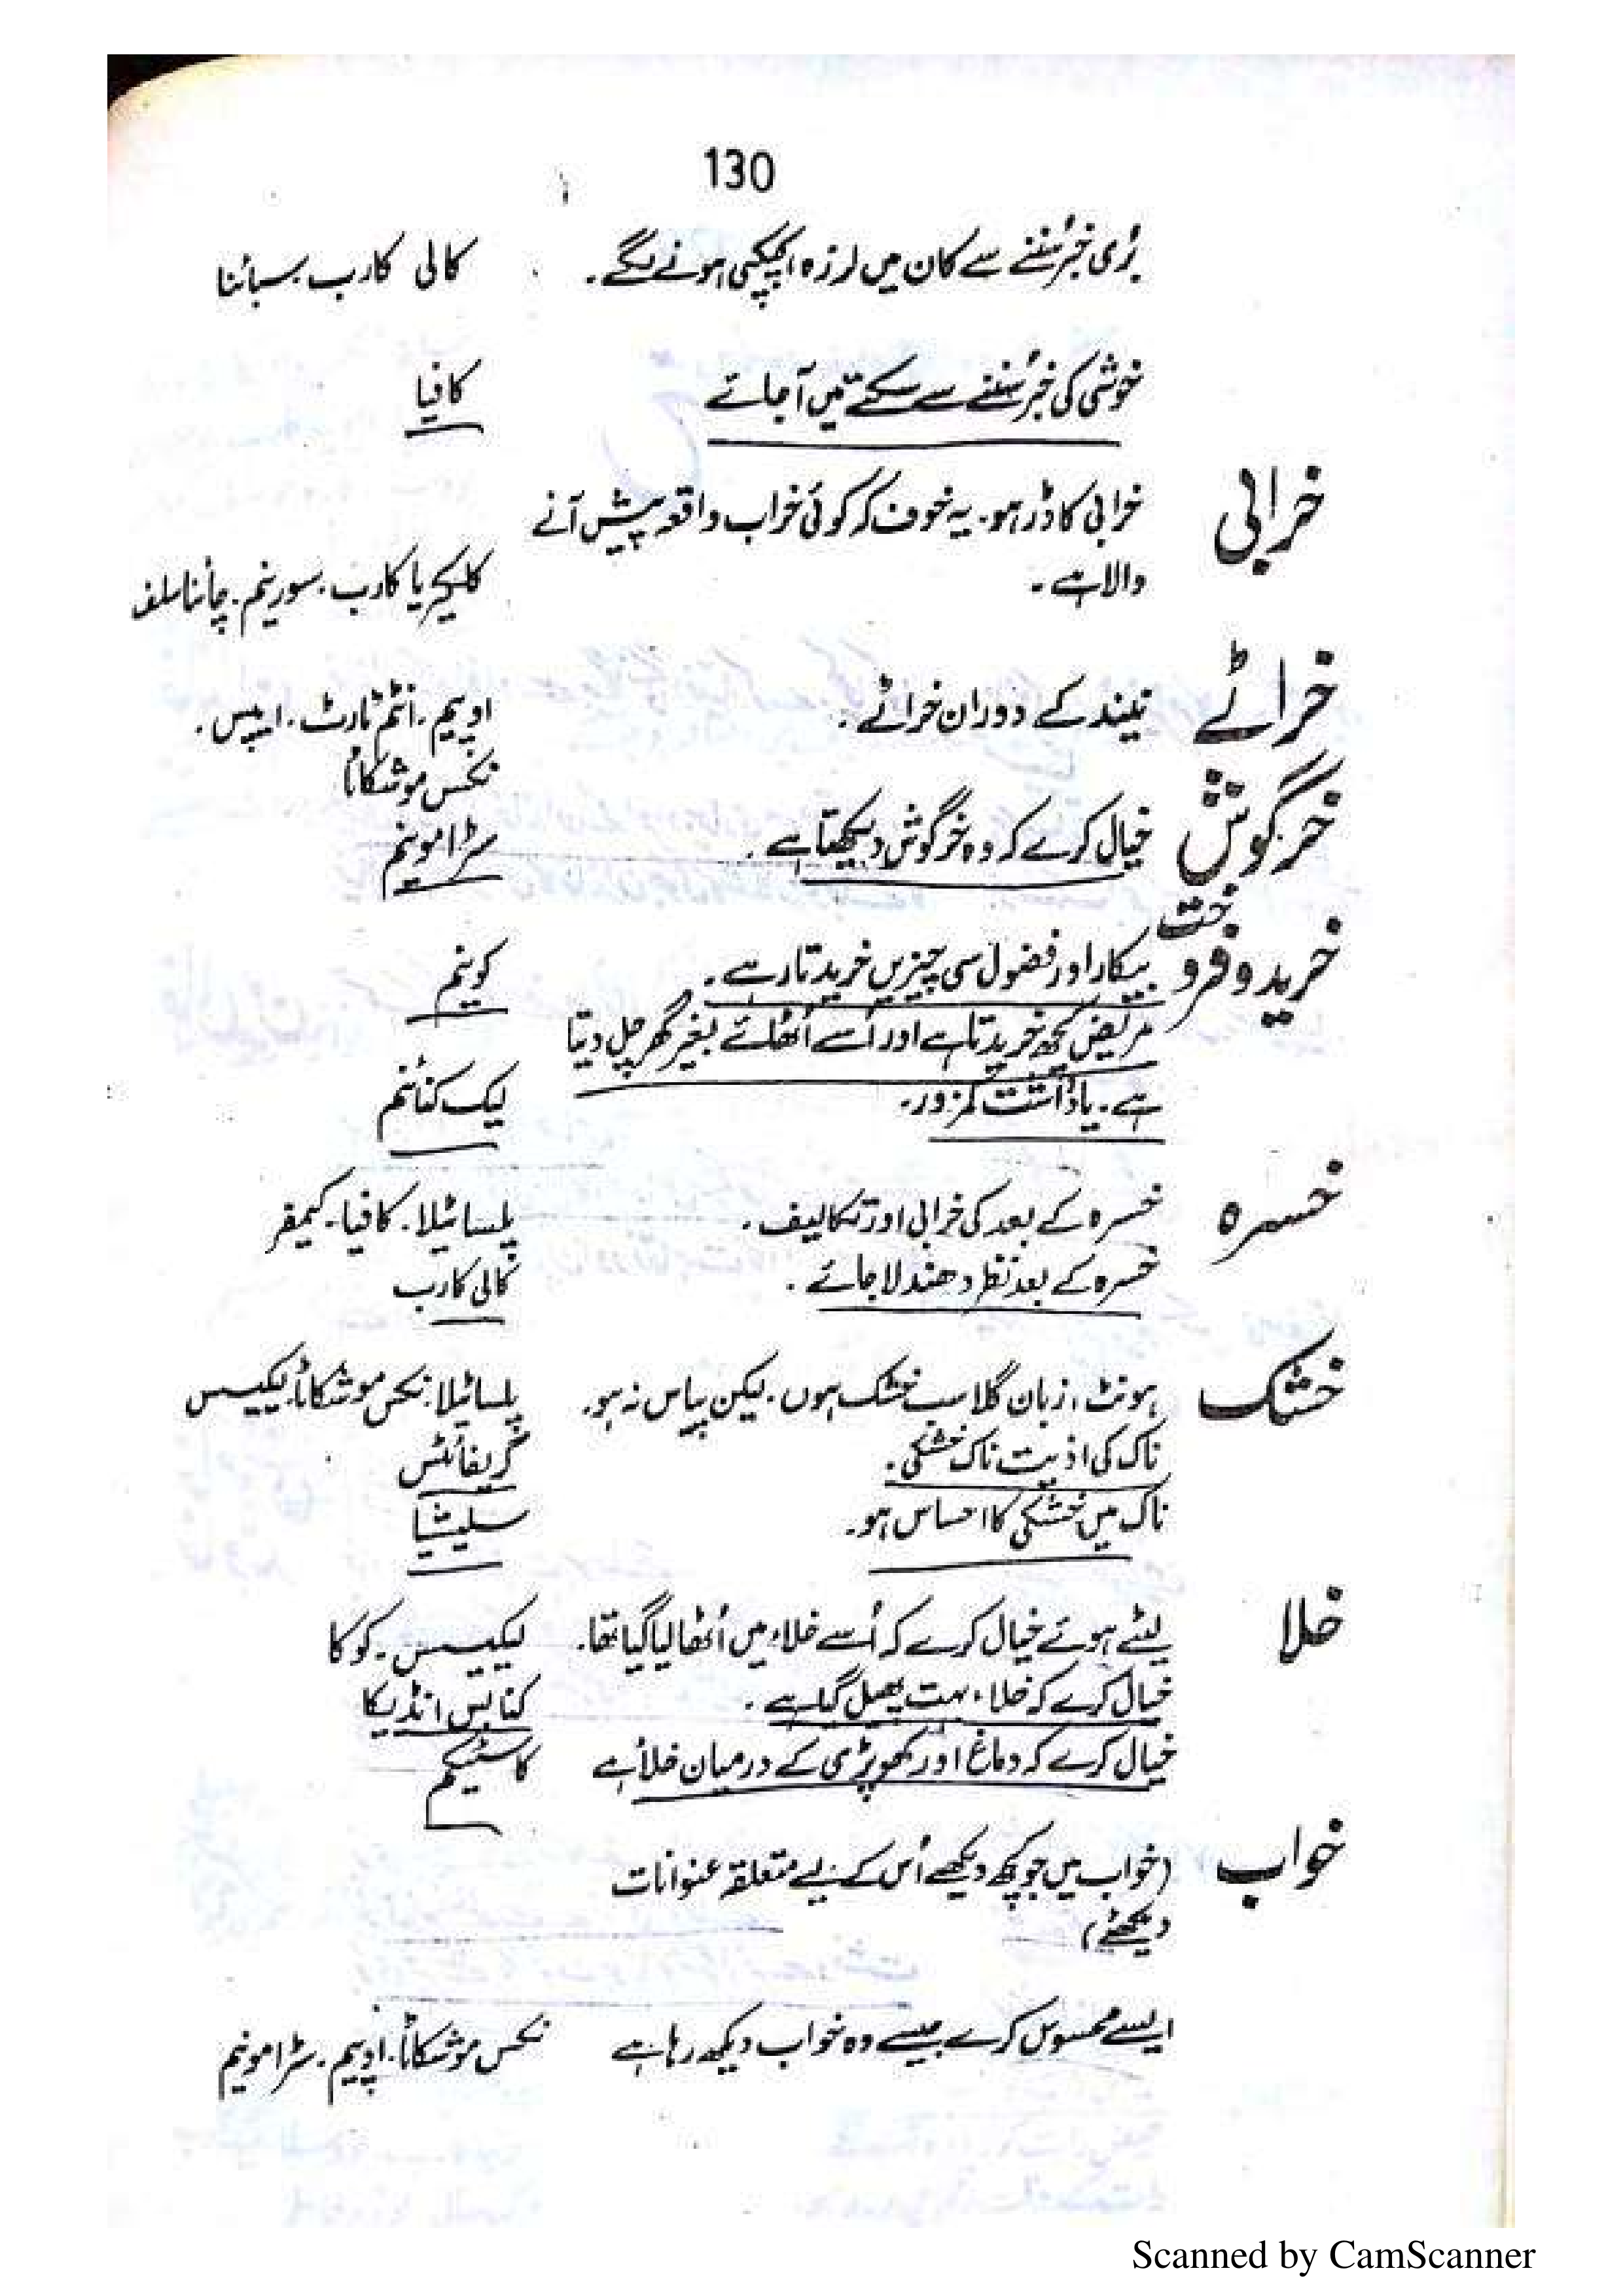 130
بُری خبر سُننے سے کان میں لرزہ، کپکپی ہونے لگے۔ کالی کارب۔ سبائنا
خوشی کی خبر سُننے سے سکتے میں آ جائے کافیا
خرابی خرابی کا ڈر ہو۔ یہ خوف کہ کوئی خراب واقعہ پیش آنے
والا ہے۔ کلکیریا کارب۔ سورینم۔ چائنا سلف
خراٹے نیند کے دوران خراٹے۔ اوپیم۔ انٹم ٹارٹ۔ ایپس۔
نکس موشکاٹا
خرگوش خیال کرے کہ وہ خرگوش دیکھتا ہے۔ سٹرامونیم
خرید و فروخت بیکار اور فضول سی چیزیں خریدتا رہے۔ کونیم
مریض کچھ خریدتا ہے اور اُسے اُٹھائے بغیر گھر چل دیتا
ہے۔ یادداشت کمزور۔ لیک کنائنم
خسرہ خسرہ کے بعد کی خرابی اور تکالیف۔ پلساٹیلا۔ کافیا۔ کیمفر
خسرہ کے بعد نظر دھندلا جائے۔ کالی کارب
خشک ہونٹ، زبان گلا سب خشک ہوں۔ لیکن پیاس نہ ہو۔ پلساٹیلا۔ نکس موشکاٹا۔ لیکیسس
ناک کی اذیت ناک خشکی۔ گریفائٹس
ناک میں خشکی کا احساس ہو۔ سلیشیا
خلا لیٹے ہوئے خیال کرے کہ اُسے خلاء میں اُٹھا لیا گیا تھا۔ لیکیسس۔ کوکا
خیال کرے کہ خلاء بہت پھیل گیا ہے۔ کنابس انڈیکا
خیال کرے کہ دماغ اور کھوپڑی کے درمیان خلأ ہے کاسٹیکم
خواب (خواب میں جو کچھ دیکھے اُس کے لیے متعلقہ عنوانات
دیکھئے)
ایسے محسوس کرے جیسے وہ خواب دیکھ رہا ہے نکس موشکاٹا۔ اوپیم۔ سٹرامونیم
Scanned by CamScanner